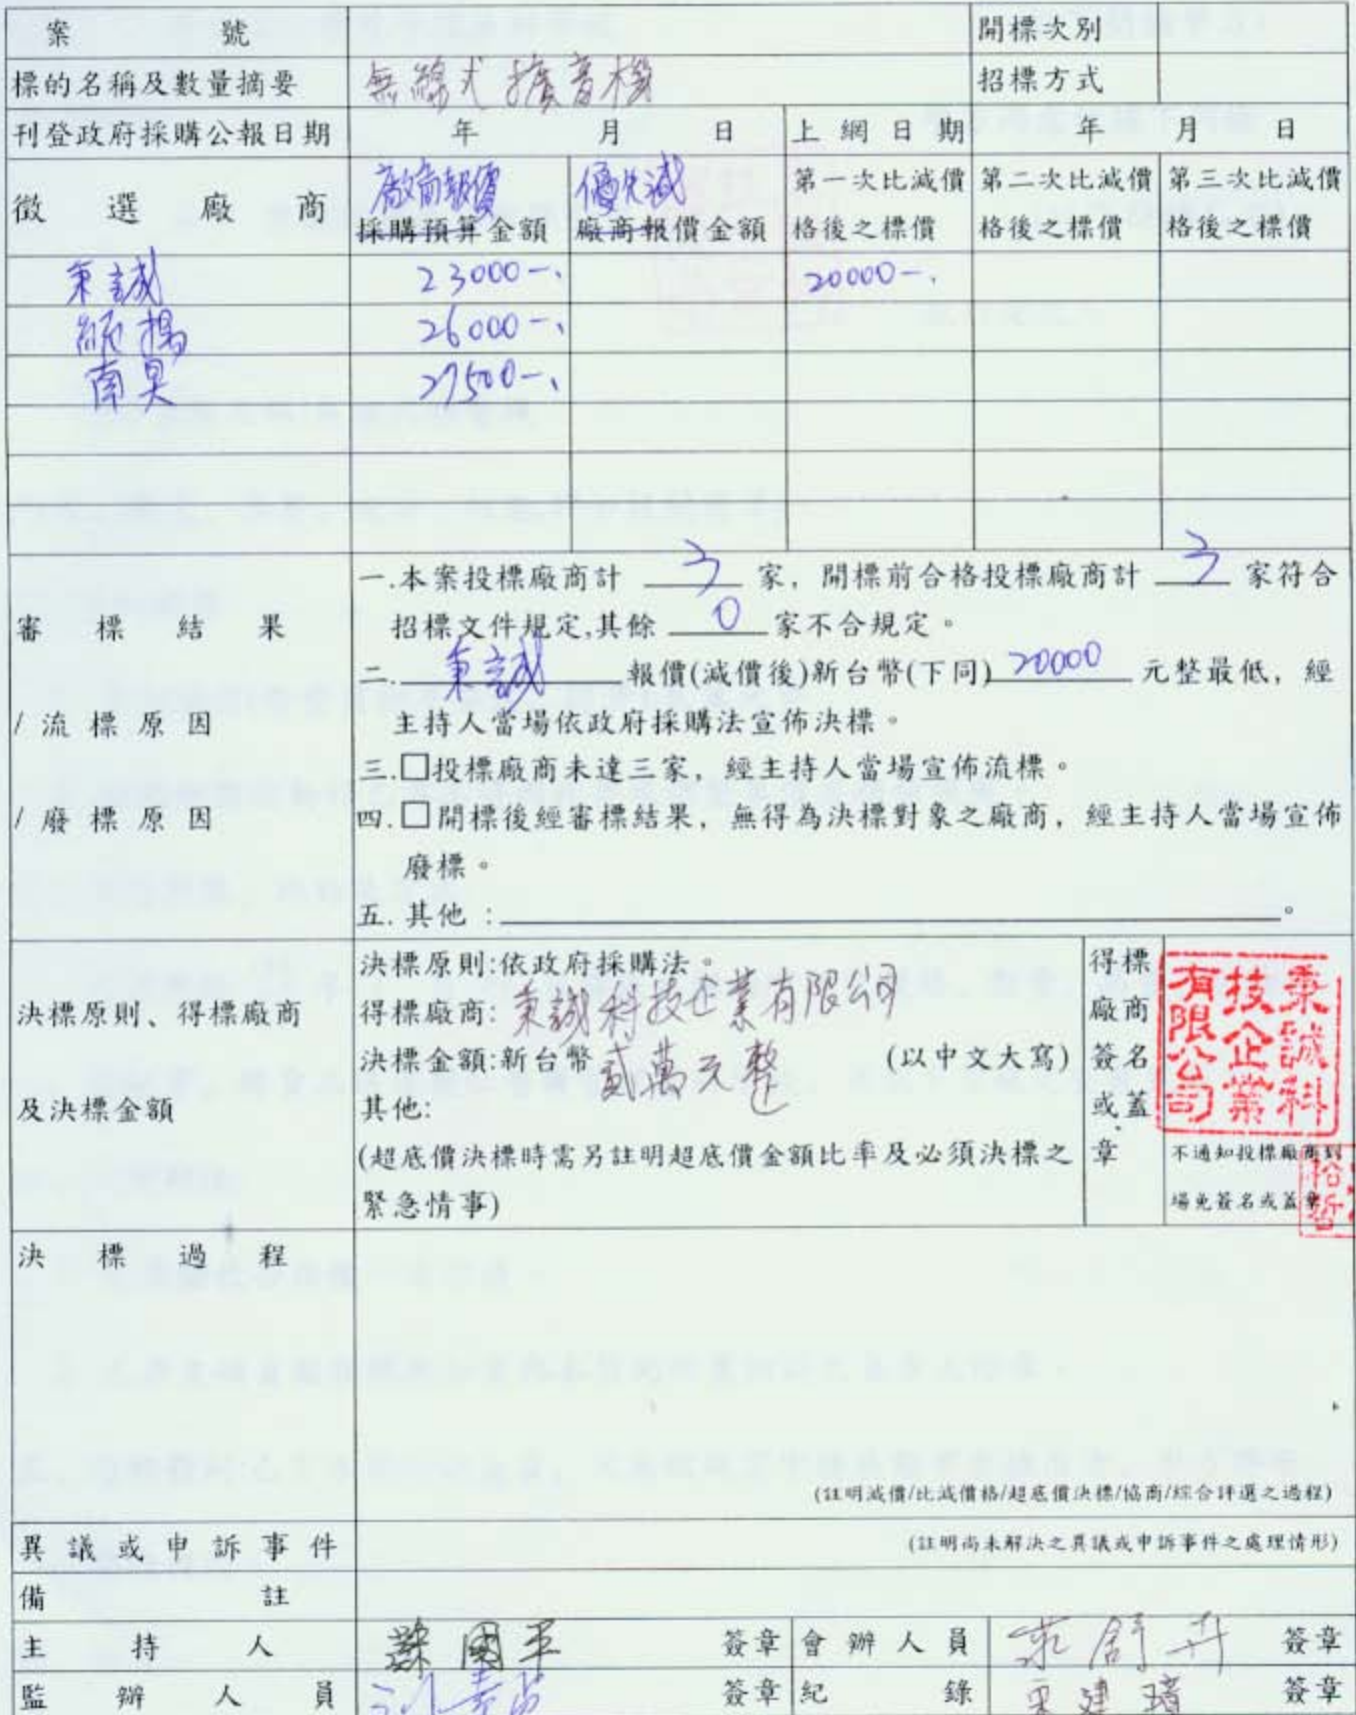 案號 開標次別
標的名稱及數量摘要 無線式擴音機 招標方式
刊登政府採購公報日期 年 月 日 上網日期 年 月 日
徵選廠商 廠商報價 採購預算金額 優先減 廠商報價金額 第一次比減價格後之標價 第二次比減價格後之標價 第三次比減價格後之標價
秉誠 23000-. 20000-.
26000-.
南昊 27500-.
審標結果
/流標原因
/廢標原因
一.本案投標廠商計 3 家，開標前合格投標廠商計 3 家符合
招標文件規定,其餘 0 家不合規定。
二. 秉誠 報價(減價後)新台幣(下同) 20000 元整最低，經
主持人當場依政府採購法宣佈決標。
三.□投標廠商未達三家，經主持人當場宣佈流標。
四.□開標後經審標結果，無得為決標對象之廠商，經主持人當場宣佈
廢標。
五.其他：。
決標原則、得標廠商
及決標金額
決標原則:依政府採購法。
得標廠商:秉誠科技企業有限公司
決標金額:新台幣 貳萬元整 (以中文大寫)
其他:
(超底價決標時需另註明超底價金額比率及必須決標之
緊急情事)
得標廠商簽名或蓋章
秉誠科技企業有限公司
不通知投標廠商到
場免簽名或蓋章
決標過程
(註明減價/比減價格/超底價決標/協商/綜合評選之過程)
異議或申訴事件 (註明尚未解決之異議或申訴事件之處理情形)
備註
主持人 蘇國平 簽章 會辦人員 簽章
監辦人員 簽章 紀錄 簽章